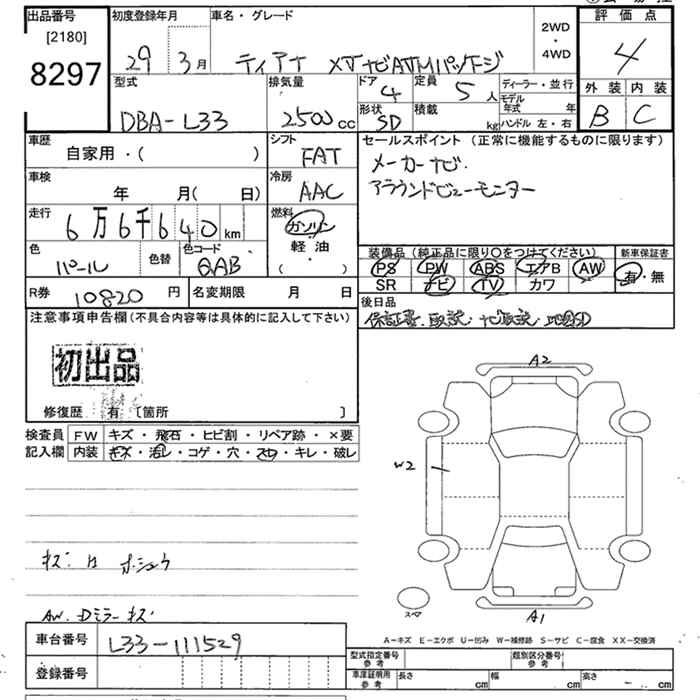 出品番号 初度登録年月 車名・グレード 2WD・4WD 評価点
[2180]
8297 29 3月 ティアナ XVナビAVMパッケージ 4
型式 排気量 ドア 4 定員 5人 ディーラー・並行 外装 内装
DBA-L33 2500cc 形状 SD 積載 kg モデル年式 年 ハンドル 左・右 B C
車歴 シフト セールスポイント (正常に機能するものに限ります)
自家用・( ) FAT メーカーナビ.
車検 冷房 アラウンドビューモニター
年 月( 日) AAC
走行 燃料
6万6千640km ガソリン
軽・油
( ・ )
色 色替 色コード 装備品 (純正品に限り○をつけてください) 新車保証書
パール QAB PS PW ABS エアB AW 有・無
SR ナビ TV カワ
R券 10820円 名変期限 月 日 後日品
注意事項申告欄(不具合内容等は具体的に記入して下さい) 保証書.取説.
初出品
修復歴 有 [箇所 ]
検査員 FW キズ・飛石・ヒビ割・リペア跡・×要
記入欄 内装 キズ・汚レ・コゲ・穴・スレ・キレ・破レ
A2
W2
キズ H ホシュウ
スペア
A1
AW.Dミラーキズ
A-キズ E-エクボ U-凹み W-補修跡 S-サビ C-腐食 XX-交換済
車台番号 L33-111529
型式指定番号 参考 類別区分番号 参考
登録番号 車庫証明用 参考 長さ cm 幅 cm 高さ cm